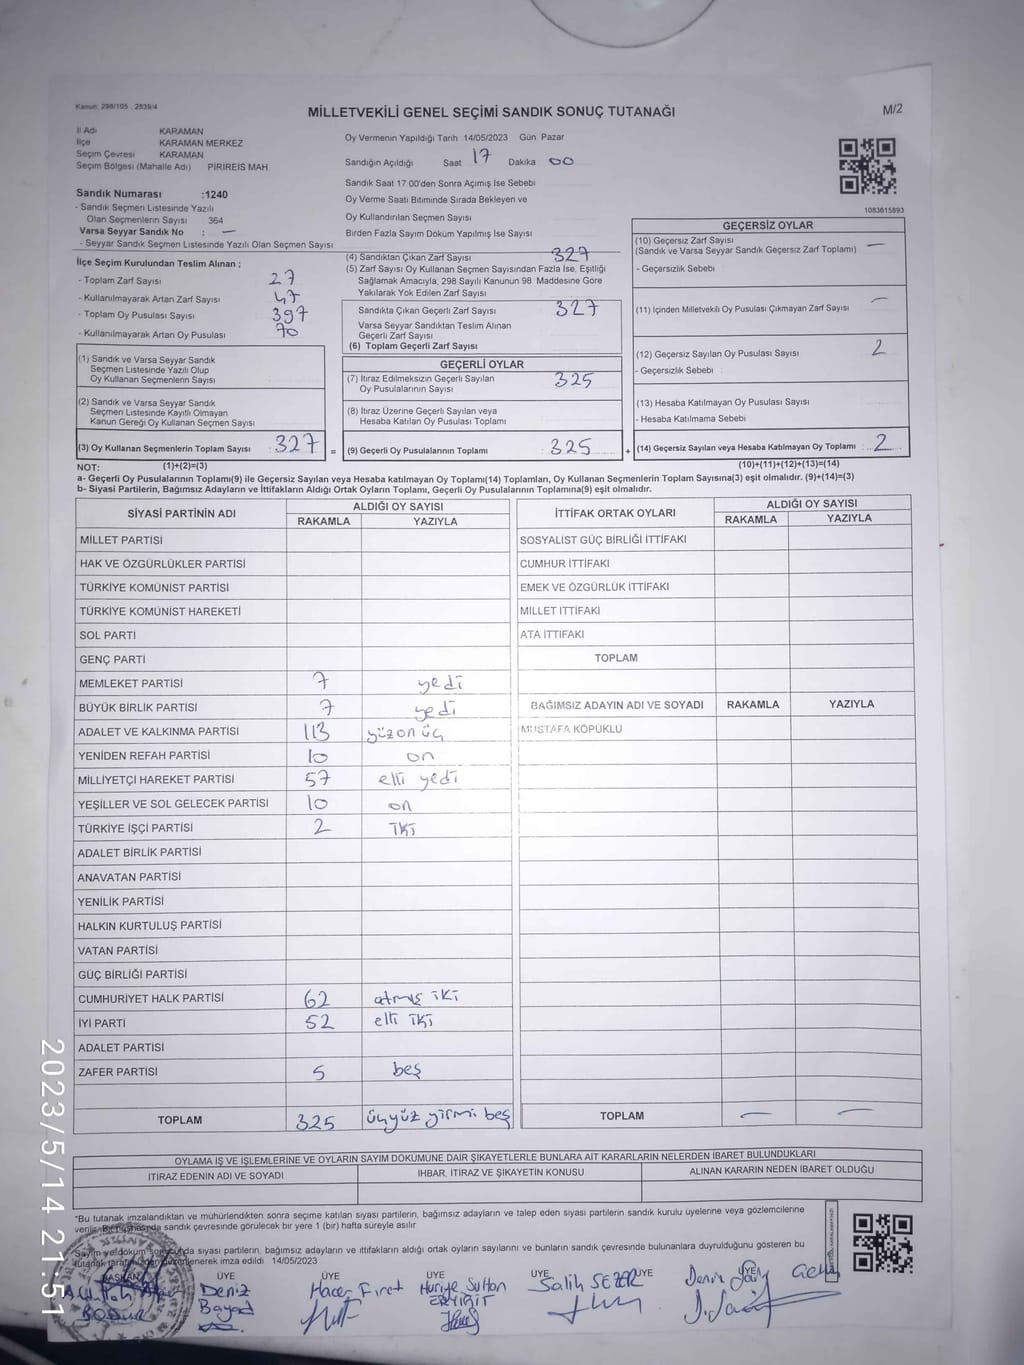 Kanun: 298/105 , 2839/4
MİLLETVEKİLİ GENEL SEÇİMİ SANDIK SONUÇ TUTANAĞI
M/2
İl Adı KARAMAN
İlçe KARAMAN MERKEZ
Seçim Çevresi KARAMAN
Seçim Bölgesi (Mahalle Adı) PİRİREİS MAH.
Oy Vermenin Yapıldığı Tarih 14/05/2023 Gün Pazar
Sandığın Açıldığı Saat 17 Dakika 00
Sandık Saat 17 00'den Sonra Açımış İse Sebebi
Oy Verme Saati Bitiminde Sırada Bekleyen ve
Oy Kullandırılan Seçmen Sayısı
Birden Fazla Sayım Döküm Yapılmış İse Sayısı
1083615893
Sandık Numarası :1240
- Sandık Seçmen Listesinde Yazılı
Olan Seçmenlerin Sayısı 364
Varsa Seyyar Sandık No : —
- Seyyar Sandık Seçmen Listesinde Yazılı Olan Seçmen Sayısı
İlçe Seçim Kurulundan Teslim Alınan ;
- Toplam Zarf Sayısı 27
- Kullanılmayarak Artan Zarf Sayısı 47
- Toplam Oy Pusulası Sayısı 397
- Kullanılmayarak Artan Oy Pusulası 70
(1) Sandık ve Varsa Seyyar Sandık
Seçmen Listesinde Yazılı Olup
Oy Kullanan Seçmenlerin Sayısı
(2) Sandık ve Varsa Seyyar Sandık
Seçmen Listesinde Kayıtlı Olmayan
Kanun Gereği Oy Kullanan Seçmen Sayısı
(3) Oy Kullanan Seçmenlerin Toplam Sayısı : 327 =
(1)+(2)=(3)
(4) Sandıktan Çıkan Zarf Sayısı 327
(5) Zarf Sayısı Oy Kullanan Seçmen Sayısından Fazla İse, Eşitliği
Sağlamak Amacıyla, 298 Sayılı Kanunun 98 Maddesine Göre
Yakılarak Yok Edilen Zarf Sayısı
Sandıkta Çıkan Geçerli Zarf Sayısı 327
Varsa Seyyar Sandıktan Teslim Alınan
Geçerli Zarf Sayısı
(6) Toplam Geçerli Zarf Sayısı
GEÇERLİ OYLAR
(7) İtiraz Edilmeksizin Geçerli Sayılan
Oy Pusulalarının Sayısı 325
(8) İtiraz Üzerine Geçerli Sayılan veya
Hesaba Katılan Oy Pusulası Toplamı
(9) Geçerli Oy Pusulalarının Toplamı : 325 +
GEÇERSİZ OYLAR
(10) Geçersiz Zarf Sayısı
(Sandık ve Varsa Seyyar Sandık Geçersiz Zarf Toplamı) —
- Geçersizlik Sebebi
(11) İçinden Milletvekili Oy Pusulası Çıkmayan Zarf Sayısı —
(12) Geçersiz Sayılan Oy Pusulası Sayısı 2
- Geçersizlik Sebebi :
(13) Hesaba Katılmayan Oy Pusulası Sayısı
- Hesaba Katılmama Sebebi
(14) Geçersiz Sayılan veya Hesaba Katılmayan Oy Toplamı : 2
(10)+(11)+(12)+(13)=(14)
NOT:
a- Geçerli Oy Pusulalarının Toplamı(9) ile Geçersiz Sayılan veya Hesaba katılmayan Oy Toplamı(14) Toplamları, Oy Kullanan Seçmenlerin Toplam Sayısına(3) eşit olmalıdır. (9)+(14)=(3)
b- Siyasi Partilerin, Bağımsız Adayların ve İttifakların Aldığı Ortak Oyların Toplamı, Geçerli Oy Pusulalarının Toplamına(9) eşit olmalıdır.
SİYASİ PARTİNİN ADI ALDIĞI OY SAYISI
RAKAMLA YAZIYLA
MİLLET PARTİSİ
HAK VE ÖZGÜRLÜKLER PARTİSİ
TÜRKİYE KOMÜNİST PARTİSİ
TÜRKİYE KOMÜNİST HAREKETİ
SOL PARTİ
GENÇ PARTİ
MEMLEKET PARTİSİ 7 yedi
BÜYÜK BİRLİK PARTİSİ 7 yedi
ADALET VE KALKINMA PARTİSİ 113 yüzon üç
YENİDEN REFAH PARTİSİ 10 on
MİLLİYETÇİ HAREKET PARTİSİ 57 elli yedi
YEŞİLLER VE SOL GELECEK PARTİSİ 10 on
TÜRKİYE İŞÇİ PARTİSİ 2 iki
ADALET BİRLİK PARTİSİ
ANAVATAN PARTİSİ
YENİLİK PARTİSİ
HALKIN KURTULUŞ PARTİSİ
VATAN PARTİSİ
GÜÇ BİRLİĞİ PARTİSİ
CUMHURİYET HALK PARTİSİ 62 atmış iki
İYİ PARTİ 52 elli iki
ADALET PARTİSİ
ZAFER PARTİSİ 5 beş
TOPLAM 325 üçyüz yirmi beş
İTTİFAK ORTAK OYLARI ALDIĞI OY SAYISI
RAKAMLA YAZIYLA
SOSYALİST GÜÇ BİRLİĞİ İTTİFAKI
CUMHUR İTTİFAKI
EMEK VE ÖZGÜRLÜK İTTİFAKI
MİLLET İTTİFAKI
ATA İTTİFAKI
TOPLAM
BAĞIMSIZ ADAYIN ADI VE SOYADI RAKAMLA YAZIYLA
MUSTAFA KÖPÜKLÜ
TOPLAM — —
OYLAMA İŞ VE İŞLEMLERİNE VE OYLARIN SAYIM DÖKÜMÜNE DAİR ŞİKAYETLERLE BUNLARA AİT KARARLARIN NELERDEN İBARET BULUNDUKLARI
İTİRAZ EDENİN ADI VE SOYADI İHBAR, İTİRAZ VE ŞİKAYETİN KONUSU ALINAN KARARIN NEDEN İBARET OLDUĞU
"Bu tutanak imzalandıktan ve mühürlendikten sonra seçime katılan siyasi partilerin, bağımsız adayların ve talep eden siyasi partilerin sandık kurulu üyelerine veya gözlemcilerine
verilir. Bir nüshası da sandık çevresinde görülecek bir yere 1 (bir) hafta süreyle asılır
Sayım ve döküm sonucunda siyasi partilerin, bağımsız adayların ve ittifakların aldığı ortak oyların sayılarını ve bunların sandık çevresinde bulunanlara duyrulduğunu gösteren bu
tutanak tarafımızdan düzenlenerek imza edildi 14/05/2023
BAŞKAN ÜYE ÜYE ÜYE ÜYE ÜYE ÜYE
BODUR
Deniz
Hacer Fırat
Huriye Sultan
Salih SEZER
2023/5/14 21:51